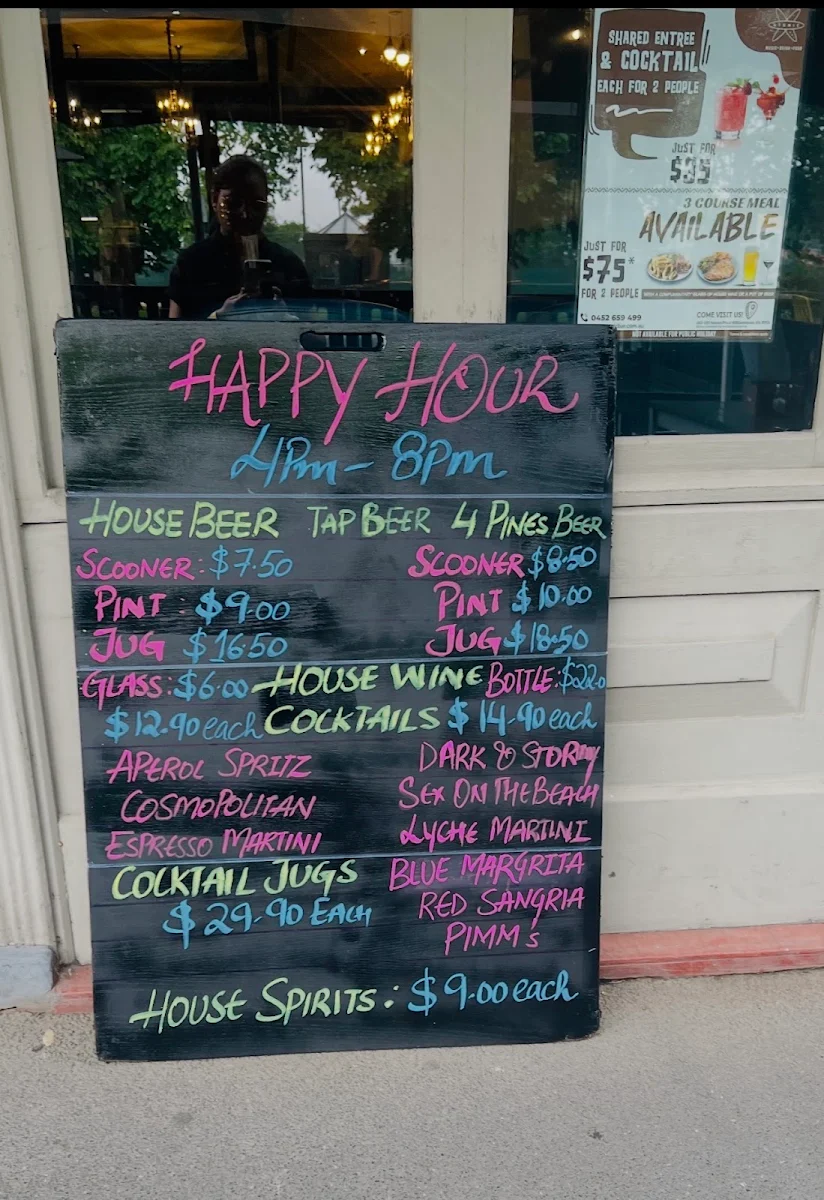 SHARED ENTREE
& COCKTAIL
EACH FOR 2 PEOPLE
JUST FOR
$35
3 COURSE MEAL
AVAILABLE
JUST FOR
$75*
FOR 2 PEOPLE
0452 659 499
COME VISIT US!
NOT AVAILABLE FOR PUBLIC HOLIDAY
HAPPY HOUR
4Pm - 8Pm
HOUSE BEER TAP BEER 4 PINES BEER
SCOONER: $7.50 SCOONER $8.50
PINT : $9.00 PINT $10.00
JUG $16.50 JUG $18.50
GLASS: $6.00 HOUSE WINE BOTTLE: $22.0
$12.90 each COCKTAILS $14.90 each
APEROL SPRITZ DARK & STORMY
COSMOPOLITAN SEX ON THE BEACH
ESPRESSO MARTINI LYCHE MARTINI
COCKTAIL JUGS BLUE MARGRITA
$29.90 EACH RED SANGRIA
PIMM s
HOUSE SPIRITS: $9.00 each